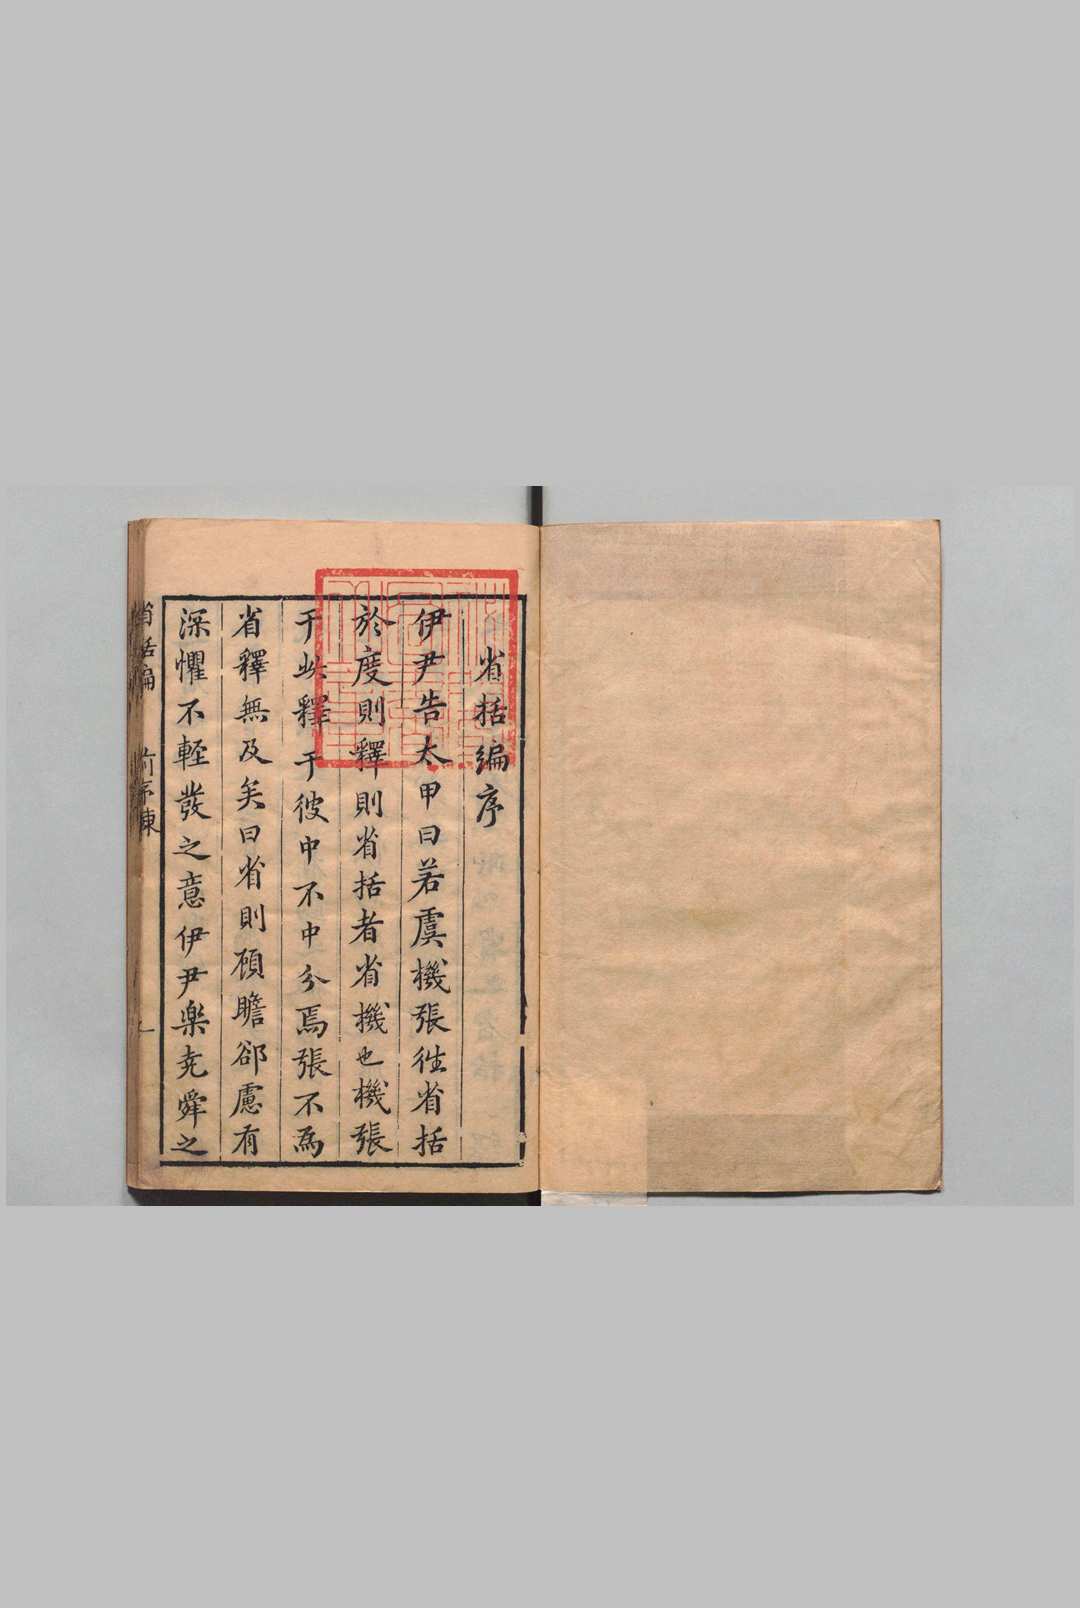 省括編序
伊尹告太甲曰若虞機張徃省括
於度則釋釋則省括者省機也機張
于此釋于彼中不中分焉張不為
省釋無及矣曰省則頋瞻郤慮有
深懼不輕發之意伊尹樂堯舜之
省括編 前序陳